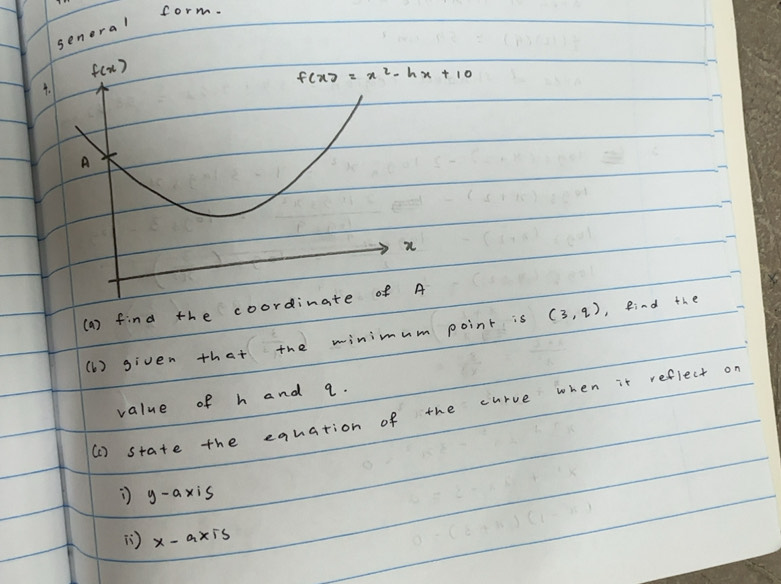 general form.
4.
f(x)
f(x) = x² - hx + 10
A
x
(a) find the coordinate of A
(b) given that the minimum point is (3, q), find the
value of h and q.
(c) state the equation of the curve when it reflect on
i) y-axis
ii) x-axis